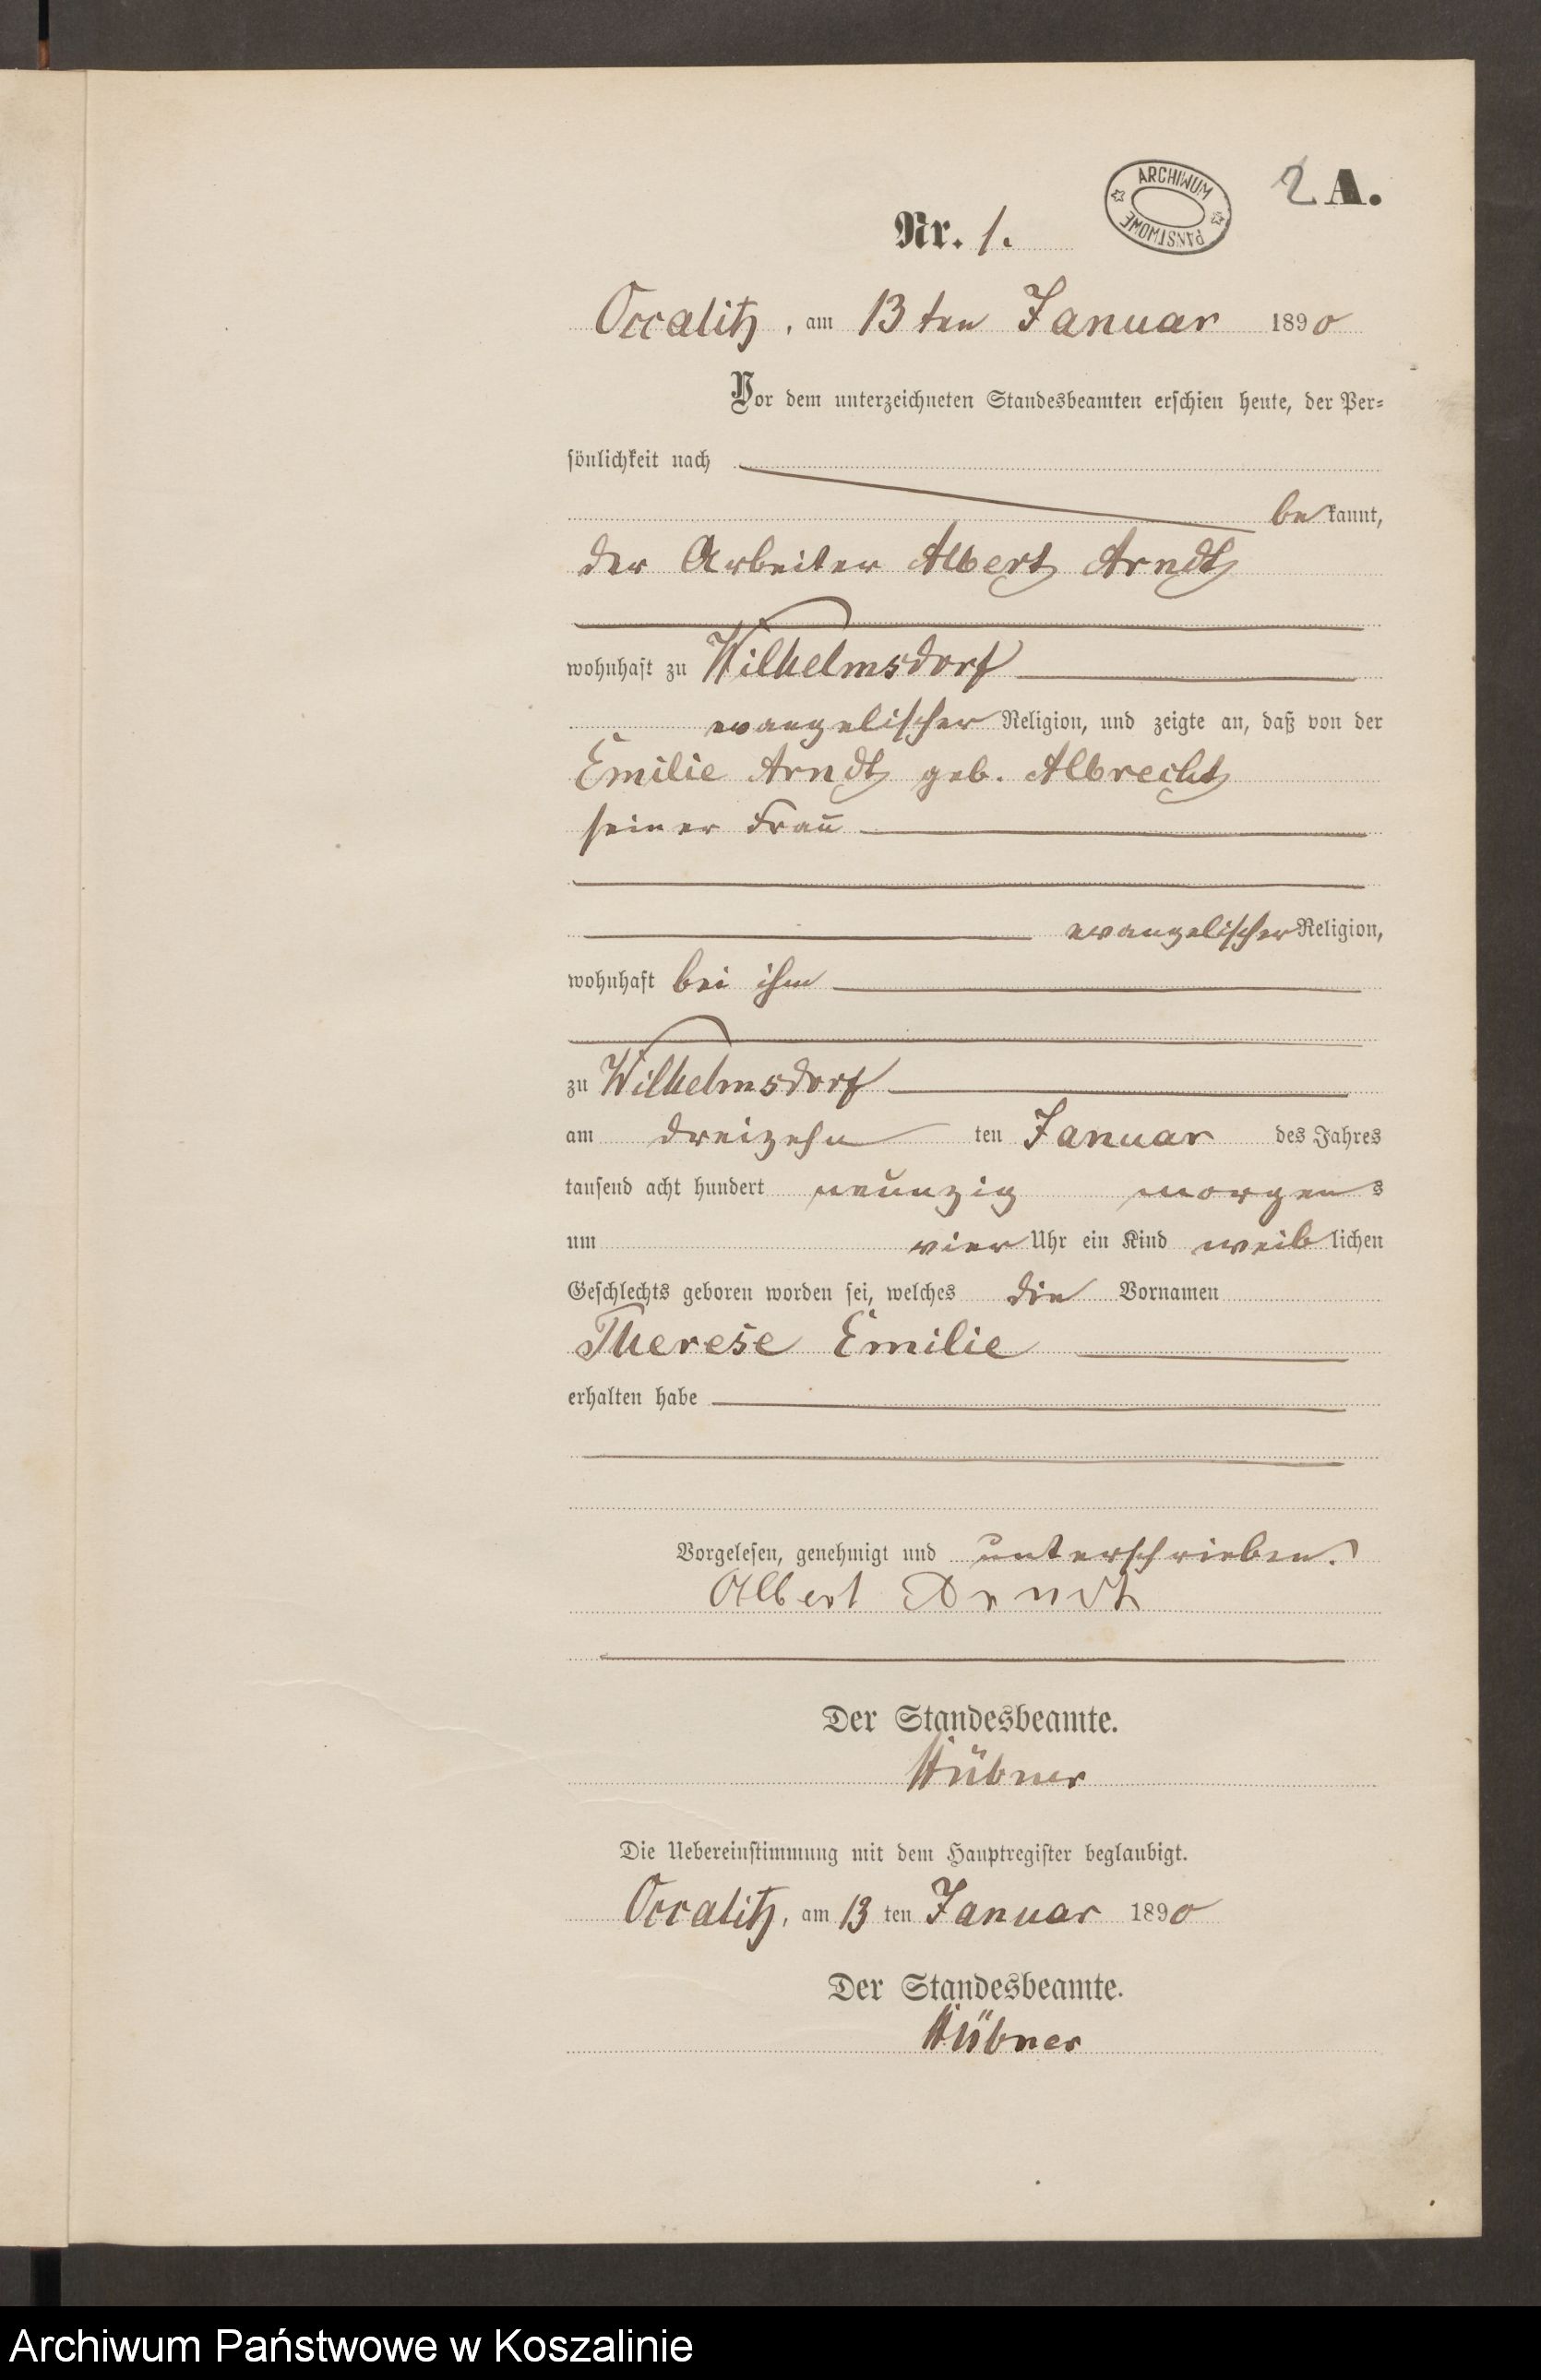 ARCHIWUM PAŃSTWOWE
2 A.
Nr. 1.
Occalitz, am 13ten Januar 1890
Vor dem unterzeichneten Standesbeamten erschien heute, der Per-
sönlichkeit nach
bekannt,
der Arbeiter Albert Arndt
wohnhaft zu Wilhelmsdorf
evangelischer Religion, und zeigte an, daß von der
Emilie Arndt geb. Albrecht
seiner Frau
evangelischer Religion,
wohnhaft bei ihm
zu Wilhelmsdorf
am dreizehn ten Januar des Jahres
tausend acht hundert neunzig morgens
um vier Uhr ein Kind weiblichen
Geschlechts geboren worden sei, welches die Vornamen
Therese Emilie
erhalten habe
Vorgelesen, genehmigt und unterschrieben.
Albert Arndt
Der Standesbeamte.
Hübner
Die Uebereinstimmung mit dem Hauptregister beglaubigt.
Occalitz, am 13 ten Januar 1890
Der Standesbeamte.
Hübner
Archiwum Państwowe w Koszalinie